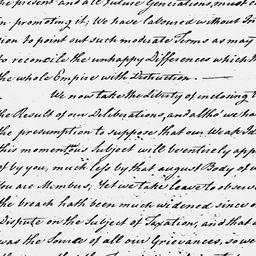 he present and all future Generations, must c
in promoting it; We have Laboured without In
ion to point out such moderate Terms as may
to reconcile the unhappy Differences which th
the whole Empire with Destruction. —
We now take the Liberty of enclosing
the Result of our Deliberations, and altho' we ha
the presumption to suppose that our Weak Id
this momentous Subject will be entirely app
of by you, much less by that august Body of w
you are Members, Yet we take Leave to observ
the breach hath been much widened since o
Dispute on the Subject of Taxation, and that
was the Source of all our Grievances, so we